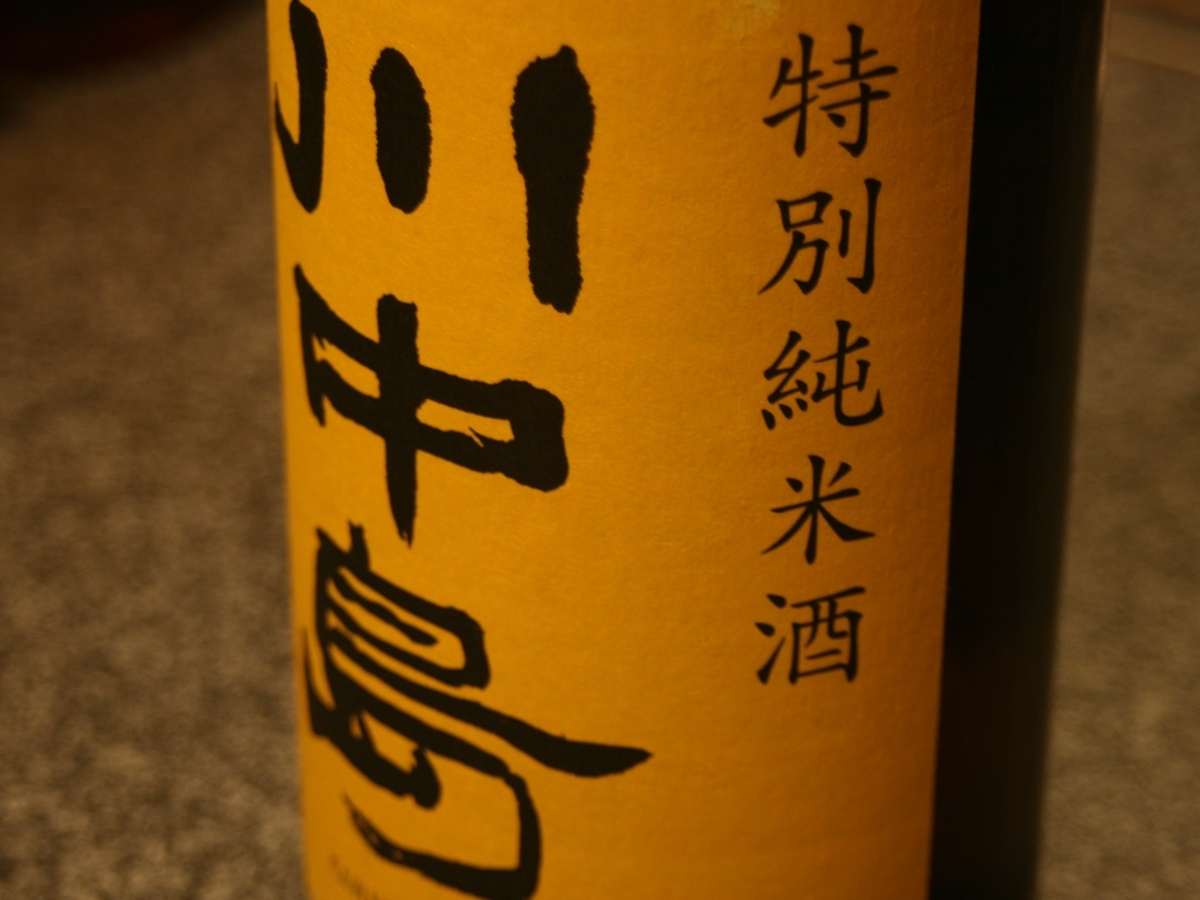 特別純米酒
川中島